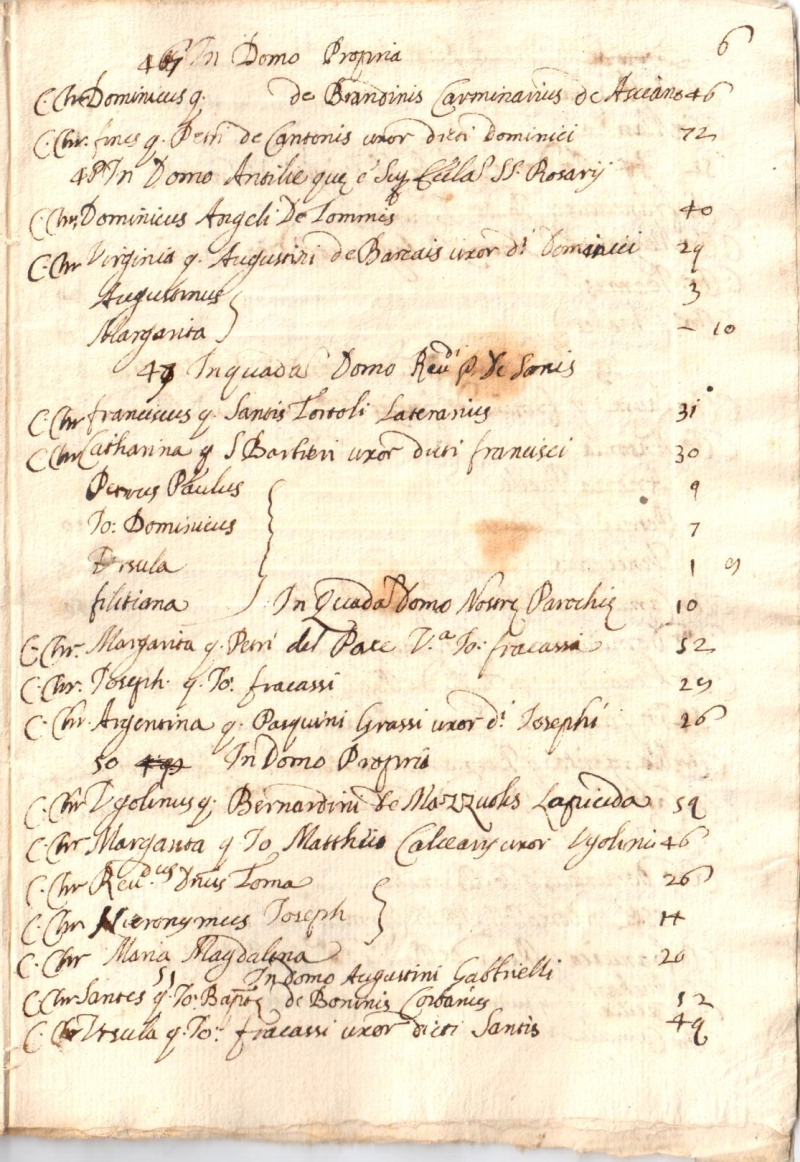 6
47 In Domo Propria
C. Chr. Dominicus q. de Brandinis Carminarius de Asciano 46
C. Chr. fines q. Petri de Cantonis uxor dicti Dominici 72
48 In Domo Ancilie que é SS. Rosarij
C. Chr. Dominicus Angeli De Tommes 40
C. Chr Virginia q. Augustini de Barcais uxor d.i Dominici 29
Augustinus } 3
Margarita } – 10
49 In quada Domo Reu.di P. De Sanis
C. Chr franciscus q. Santis Tortoli Lateranius 31
C. Chr Catharina q S Barbieri uxor dicti francisci 30
Petrus Paulus 9
Jo: Dominicus 7
Ursula 1 9
filitiana } In Quada Domo Nostrę Parochię 10
C. Chr. Margarita q. Petri del Pace V.a Jo: fracassi 52
C. Chr. Joseph q. Jo: fracassi 29
C. Chr. Argentina q. Pasquini Grassi uxor d.i Josephi 26
50 49 In Domo Propria
C. Chr Vgolinus q. Bernardini de Mazzuolis Lapicida 59
C. Chr Margarita q Jo Matthio Calcearij uxor Vgolini 46
C. Chr Reu.dus Dnus Toma 26
C. Chr Hieronymus Joseph } 14
C. Chr Maria Magdalena 20
51 In domo Augustini Gabrielli
C. Chr Santes q. Jo: Baptę de Boninis 52
C. Chr Ursula q. Jo: fracassi uxor dicti Santis 49